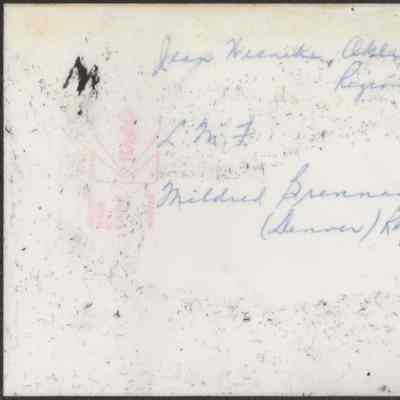 Jean Wieneke, Okla
Region
L. M. F.
Mildred Brennan
(Denver) Re